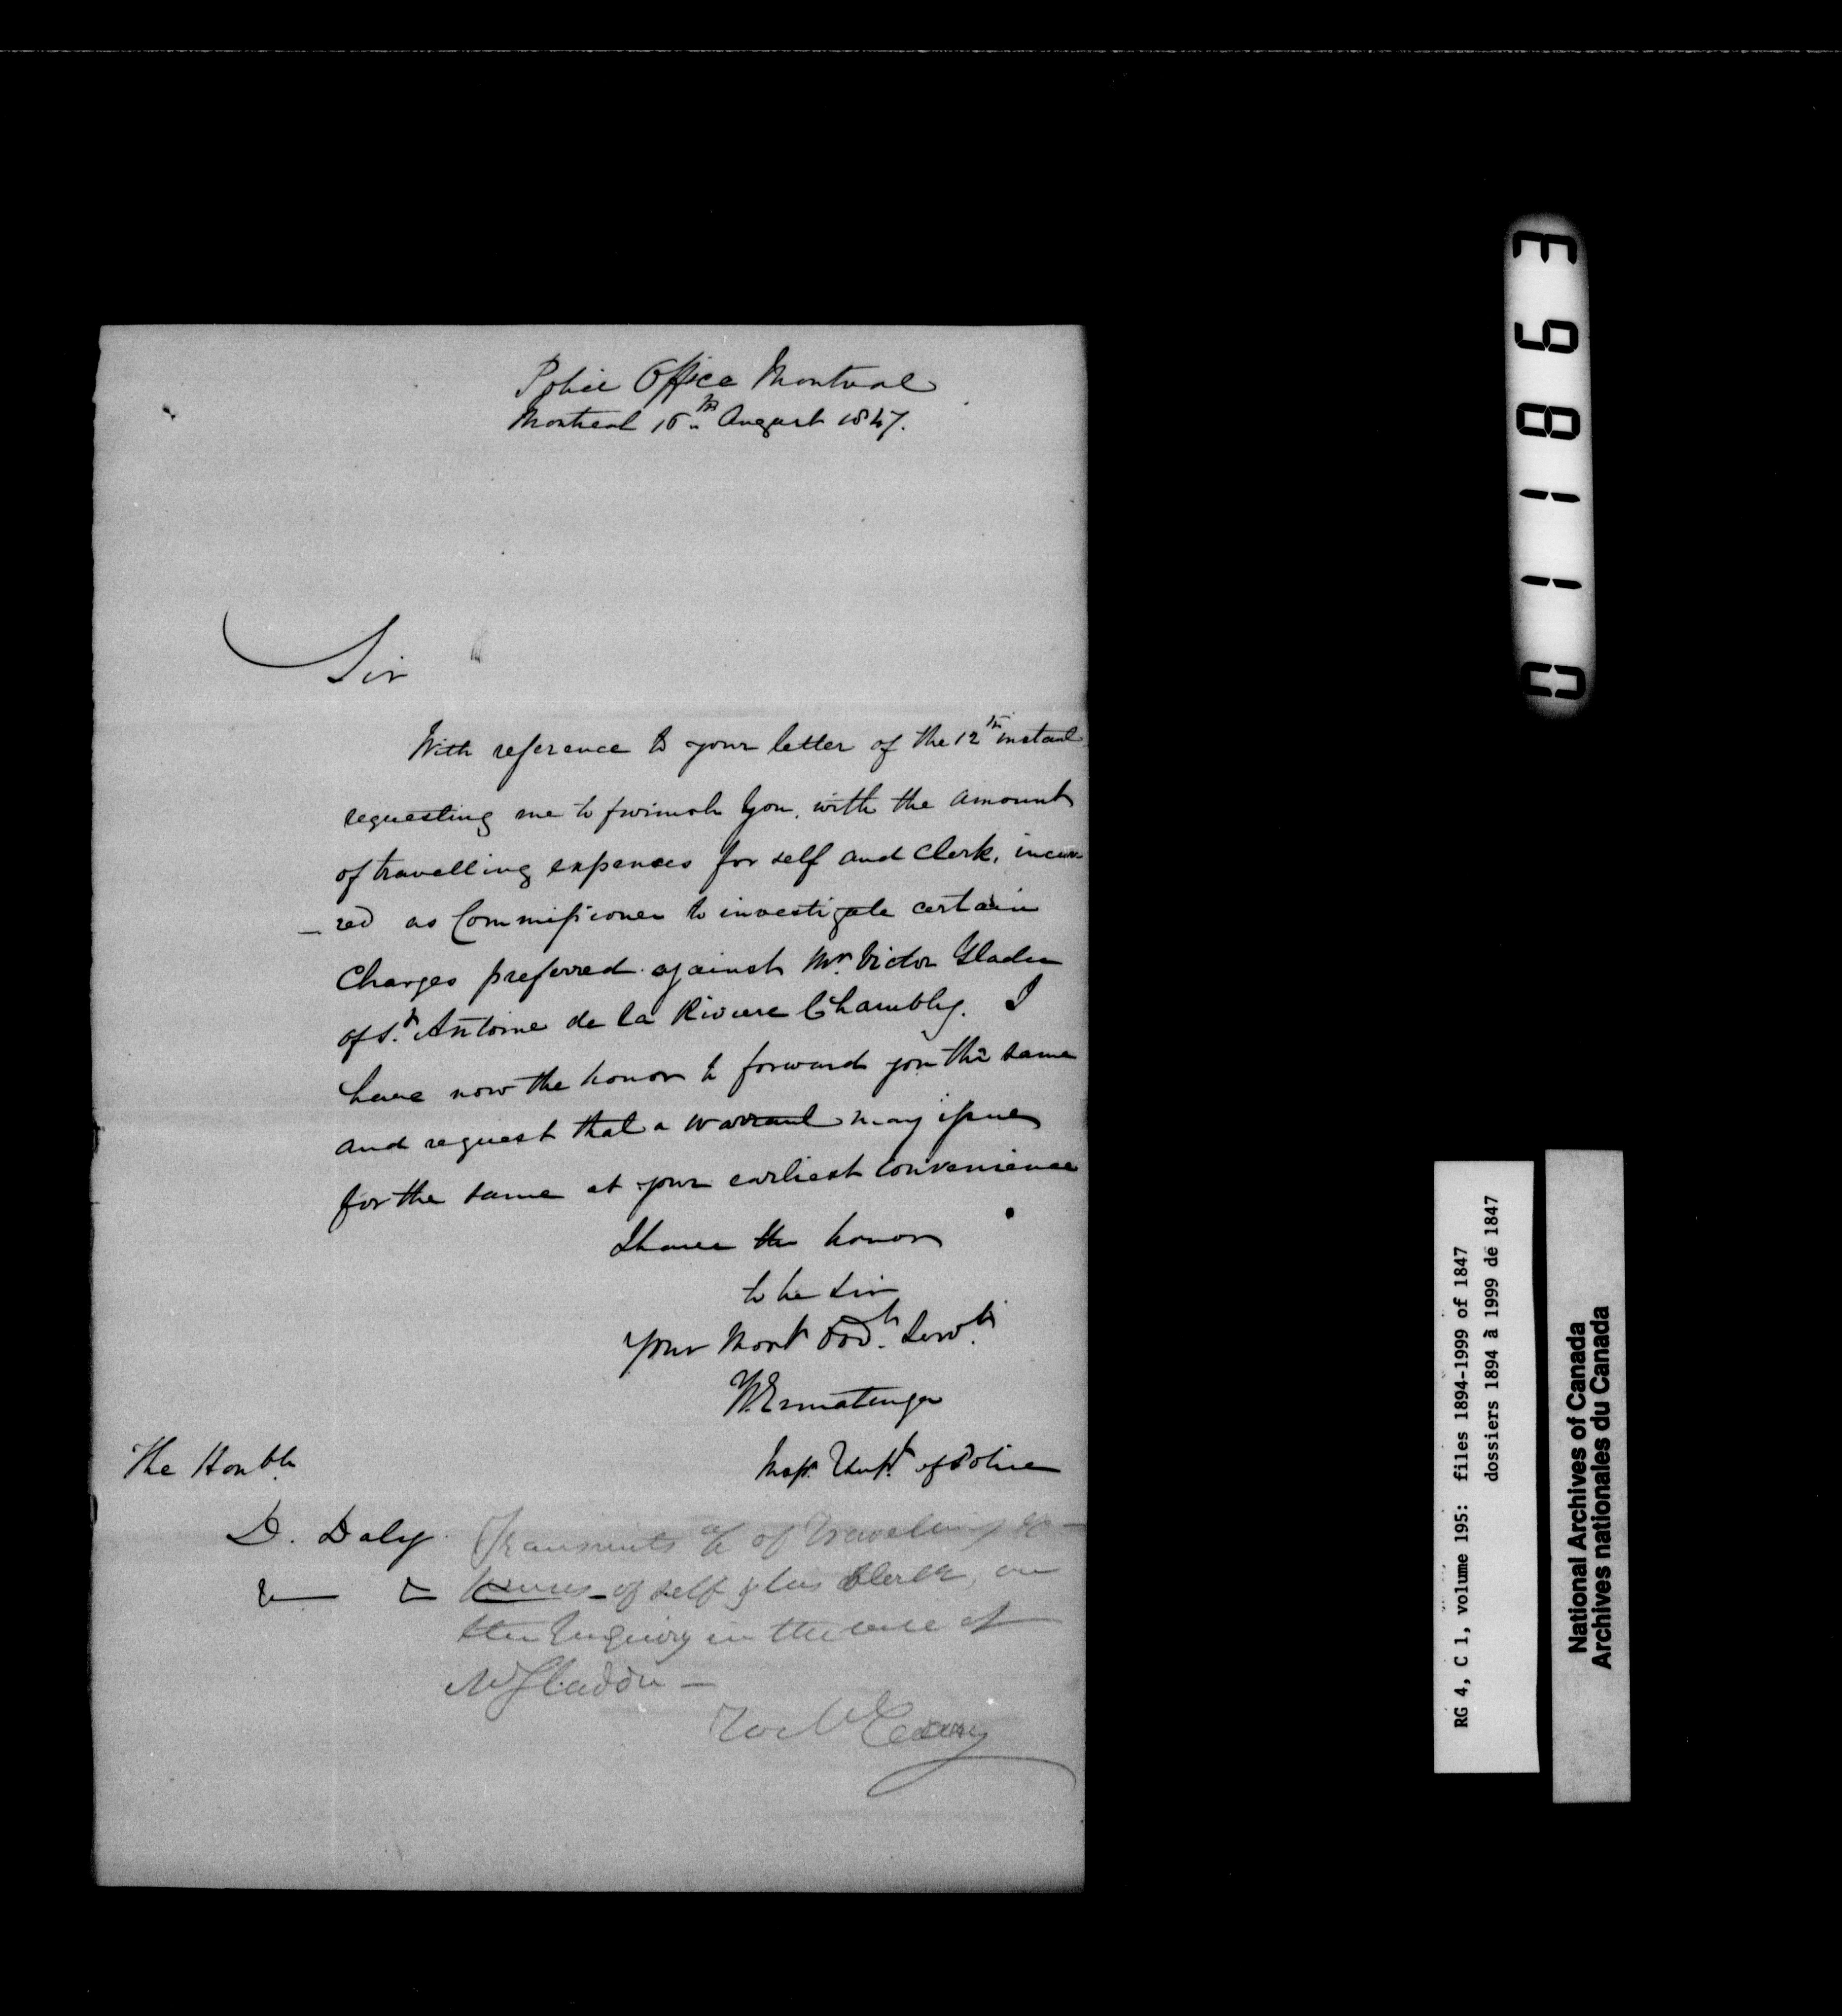 Police Office Montreal
Montreal 16th August 1847.
Sir
With reference to your letter of the 12th instant
requesting me to furnish you, with the amount
of travelling expences for self and Clerk, incur-
-red as Commissioner to investigate certain
Charges preferred against Mr. Victor Gladu
of St. Antoine de la Riviere Chambly. I
have now the honor to forward you the same
and request that a warrant may issue
for the same at your earliest convenience
I have the honor
to be Sir
Your Most Obdt. Servt.
W. Ermatinger
Insp. Supt. of Police
The Honble
D. Daly
&c &c
Transmits a/c of Travelling ex-
penses of self & his Clerk, on
the Enquiry in the case of
Mr Gladdu -
011893
RG 4, C 1, volume 195: files 1894-1999 of 1847
dossiers 1894 à 1999 de 1847
National Archives of Canada
Archives nationales du Canada